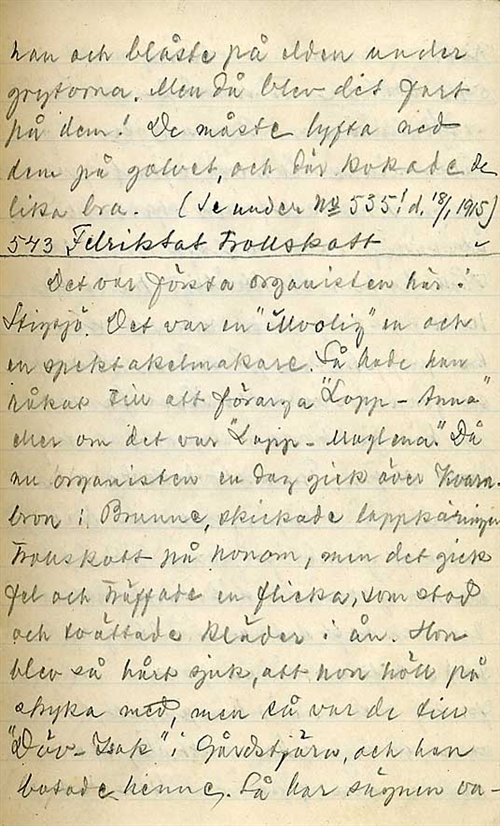 han och blåste på elden under
grytorna. Men då blev det fart
på dem! De måste lyfta ned
dem på golvet, och där kokade de
lika bra. (Se under No 535! d. 18/1, 1915)
543 Felriktat Trollskott
Det var första organisten här i
Stigsjö. Det var en " en och
en spektakelmakare. Så hade han
råkat till att förarga "Lapp-Anna"
eller om det var "Lapp-Maglena." Då
nu organisten en dag gick över Kvarn-
bron i Brunne, skickade lappkäringen
Trollskott på honom, men det gick
fel och träffade en flicka, som stod
och tvättade kläder i ån. Hon
blev så hårt sjuk, att hon höll på
stryka med, men så var de till
"Döv-Isak" i Gårdstjärn, och han
botade henne. Så har sägnen va-